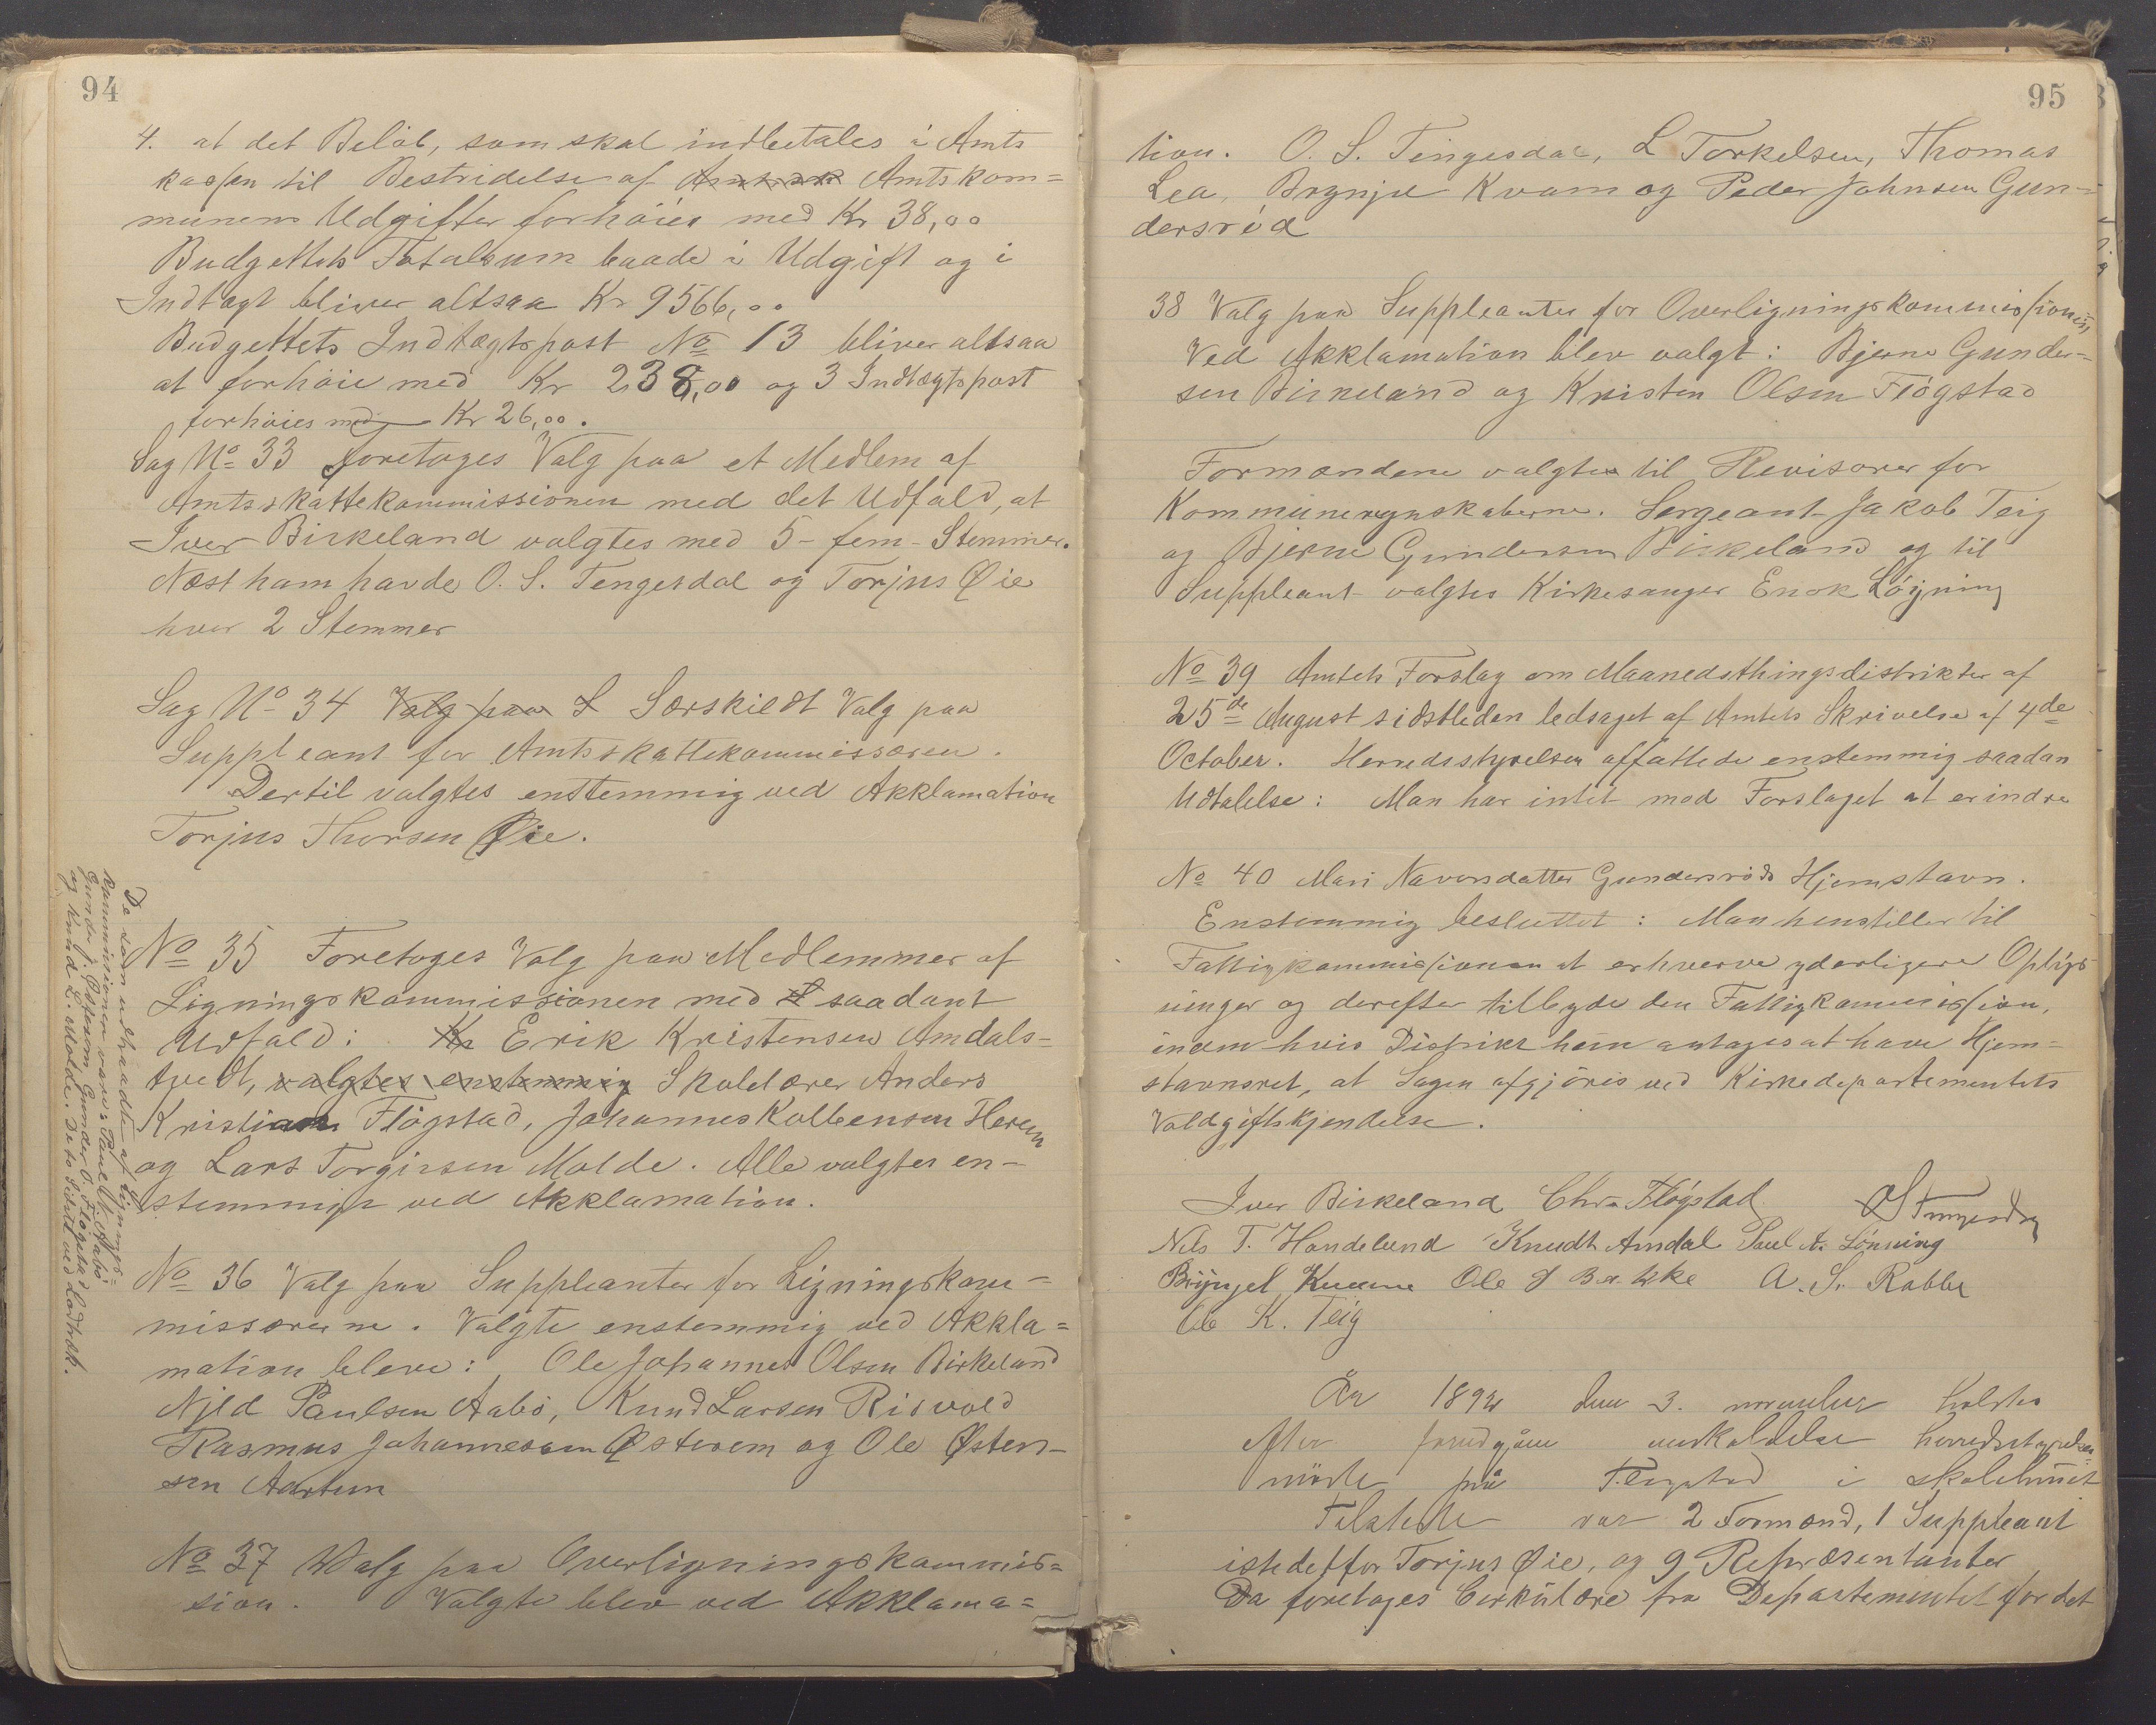 94
4. at det Beløb, som skal indbetales i Amts
kassen til Bestridelse af Amtskom=
munens Udgifter forhøies med Kr 38,00
Budgettets Totalsum baade i Udgift og i
Indtægt bliver altsaa Kr 9566,00
Budgettets Indtægtspost No 13 bliver altsaa
at forhøie med Kr 238,00 og 3 Indtægtspost
forhøies med Kr 26,00.
Sag No 33 foretoges Valg paa et Medlem af
Amtsskattekommissionen med det Udfald, at
Iver Birkeland valgtes med 5 - fem - Stemmer.
Næst ham havde O. S. Tengesdal og Torjus Øie
hver 2 Stemmer
Sag No 34 Valg paa S Særskildt Valg paa
Suppleant for Amtsskattekommissæren.
Dertil valgtes enstemmig ved Akklamation
Torjus Thorsen Øie.
No 35 Foretoges Valg paa Medlemmer af
Ligningskommissionen med S saadant
Udfald: Kr Erik Kristensen Amdals=
tvedt, valgtes enstemmig Skolelærer Anders
Kristian Fløgstad, Johannes Kolbensen Herem
og Lars Torgirsen Molde. Alle valgtes en-
stemmige ved Akklamation.
De som udtraadte af Lignings=
kommissionen vare: Paul N. Aabø
Gunder J. Østerem Gunder O. Fløgstad
og Knud L. Molde. De to sidste ved Lodtræk.
No 36 Valg paa Suppleanter for Ligningskom=
missærerne. Valgte enstemmig ved Akkla=
mation bleve: Ole Johannes Olsen Birkeland
Njeld Paulsen Aabø, Knud Larsen Risvold
Rasmus Johannessen Østerem og Ole Østen-
sen Aartun
No 37 Valg paa Overligningskommis=
sion. Valgte blev ved Akklama=
95
tion. O. S. Tengesdal, L Torkelsen, Thomas
Lea, Brynjel Kvam og Peder Johnsen Gun=
dersrød
38 Valg paa Suppleanter for Overligningskommissionen,
Ved Akklamation blev valgt: Bjerne Gunder=
sen Birkeland og Kristen Olsen Fløgstad
Formændene valgtes til Revisorer for
Kommuneregnskaberne. Sergeant Jakob Teig
og Bjerne Gundersen Birkeland og til
Suppleant valgtes Kirkesanger Enok Løgning
No 39 Amtets Forslag om Maanedsthingsdistrikter af
25de August sidstleden ledsaget af Amtets Skrivelse af 4de
October. Herredsstyrelsen affattede enstemmig saadan
Udtalelse: Man har intet mod Forslaget at erindre
No 40 Mari Naversdatter Gundersrøds Hjemstavn.
Enstemmig besluttet: Man henstiller til
Fattigkommissionen at erhverve yderligere Oplys
ninger og derefter tilbyde den Fattigkommission,
inden hvis Distrikt hun antages at have Hjem=
stavnsret, at Sagen afgjøres ved Kirkedepartementets
Voldgiftskjendelse.
Iver Birkeland Chr. Fløgstad
Nels T. Handeland Knudt Amdal Paul A. Lønning
Brynjel Kvame Ole A. S. Rabbe
Ole K. Teig
År 1892 den 3. november holdtes
efter foregåen herredsstyrelses
møde på Fløgstad i skolehuset
Tilstede var 2 Formænd, 1 Suppleant
istedetfor Torjus Øie, og 9 Repræsentanter
Da foretoges Cirkulære fra Departementet for det